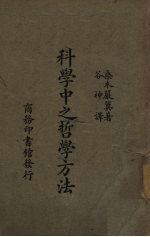 桑木嚴翼著
谷神譯
科學中之哲學方法
商務印書館發行